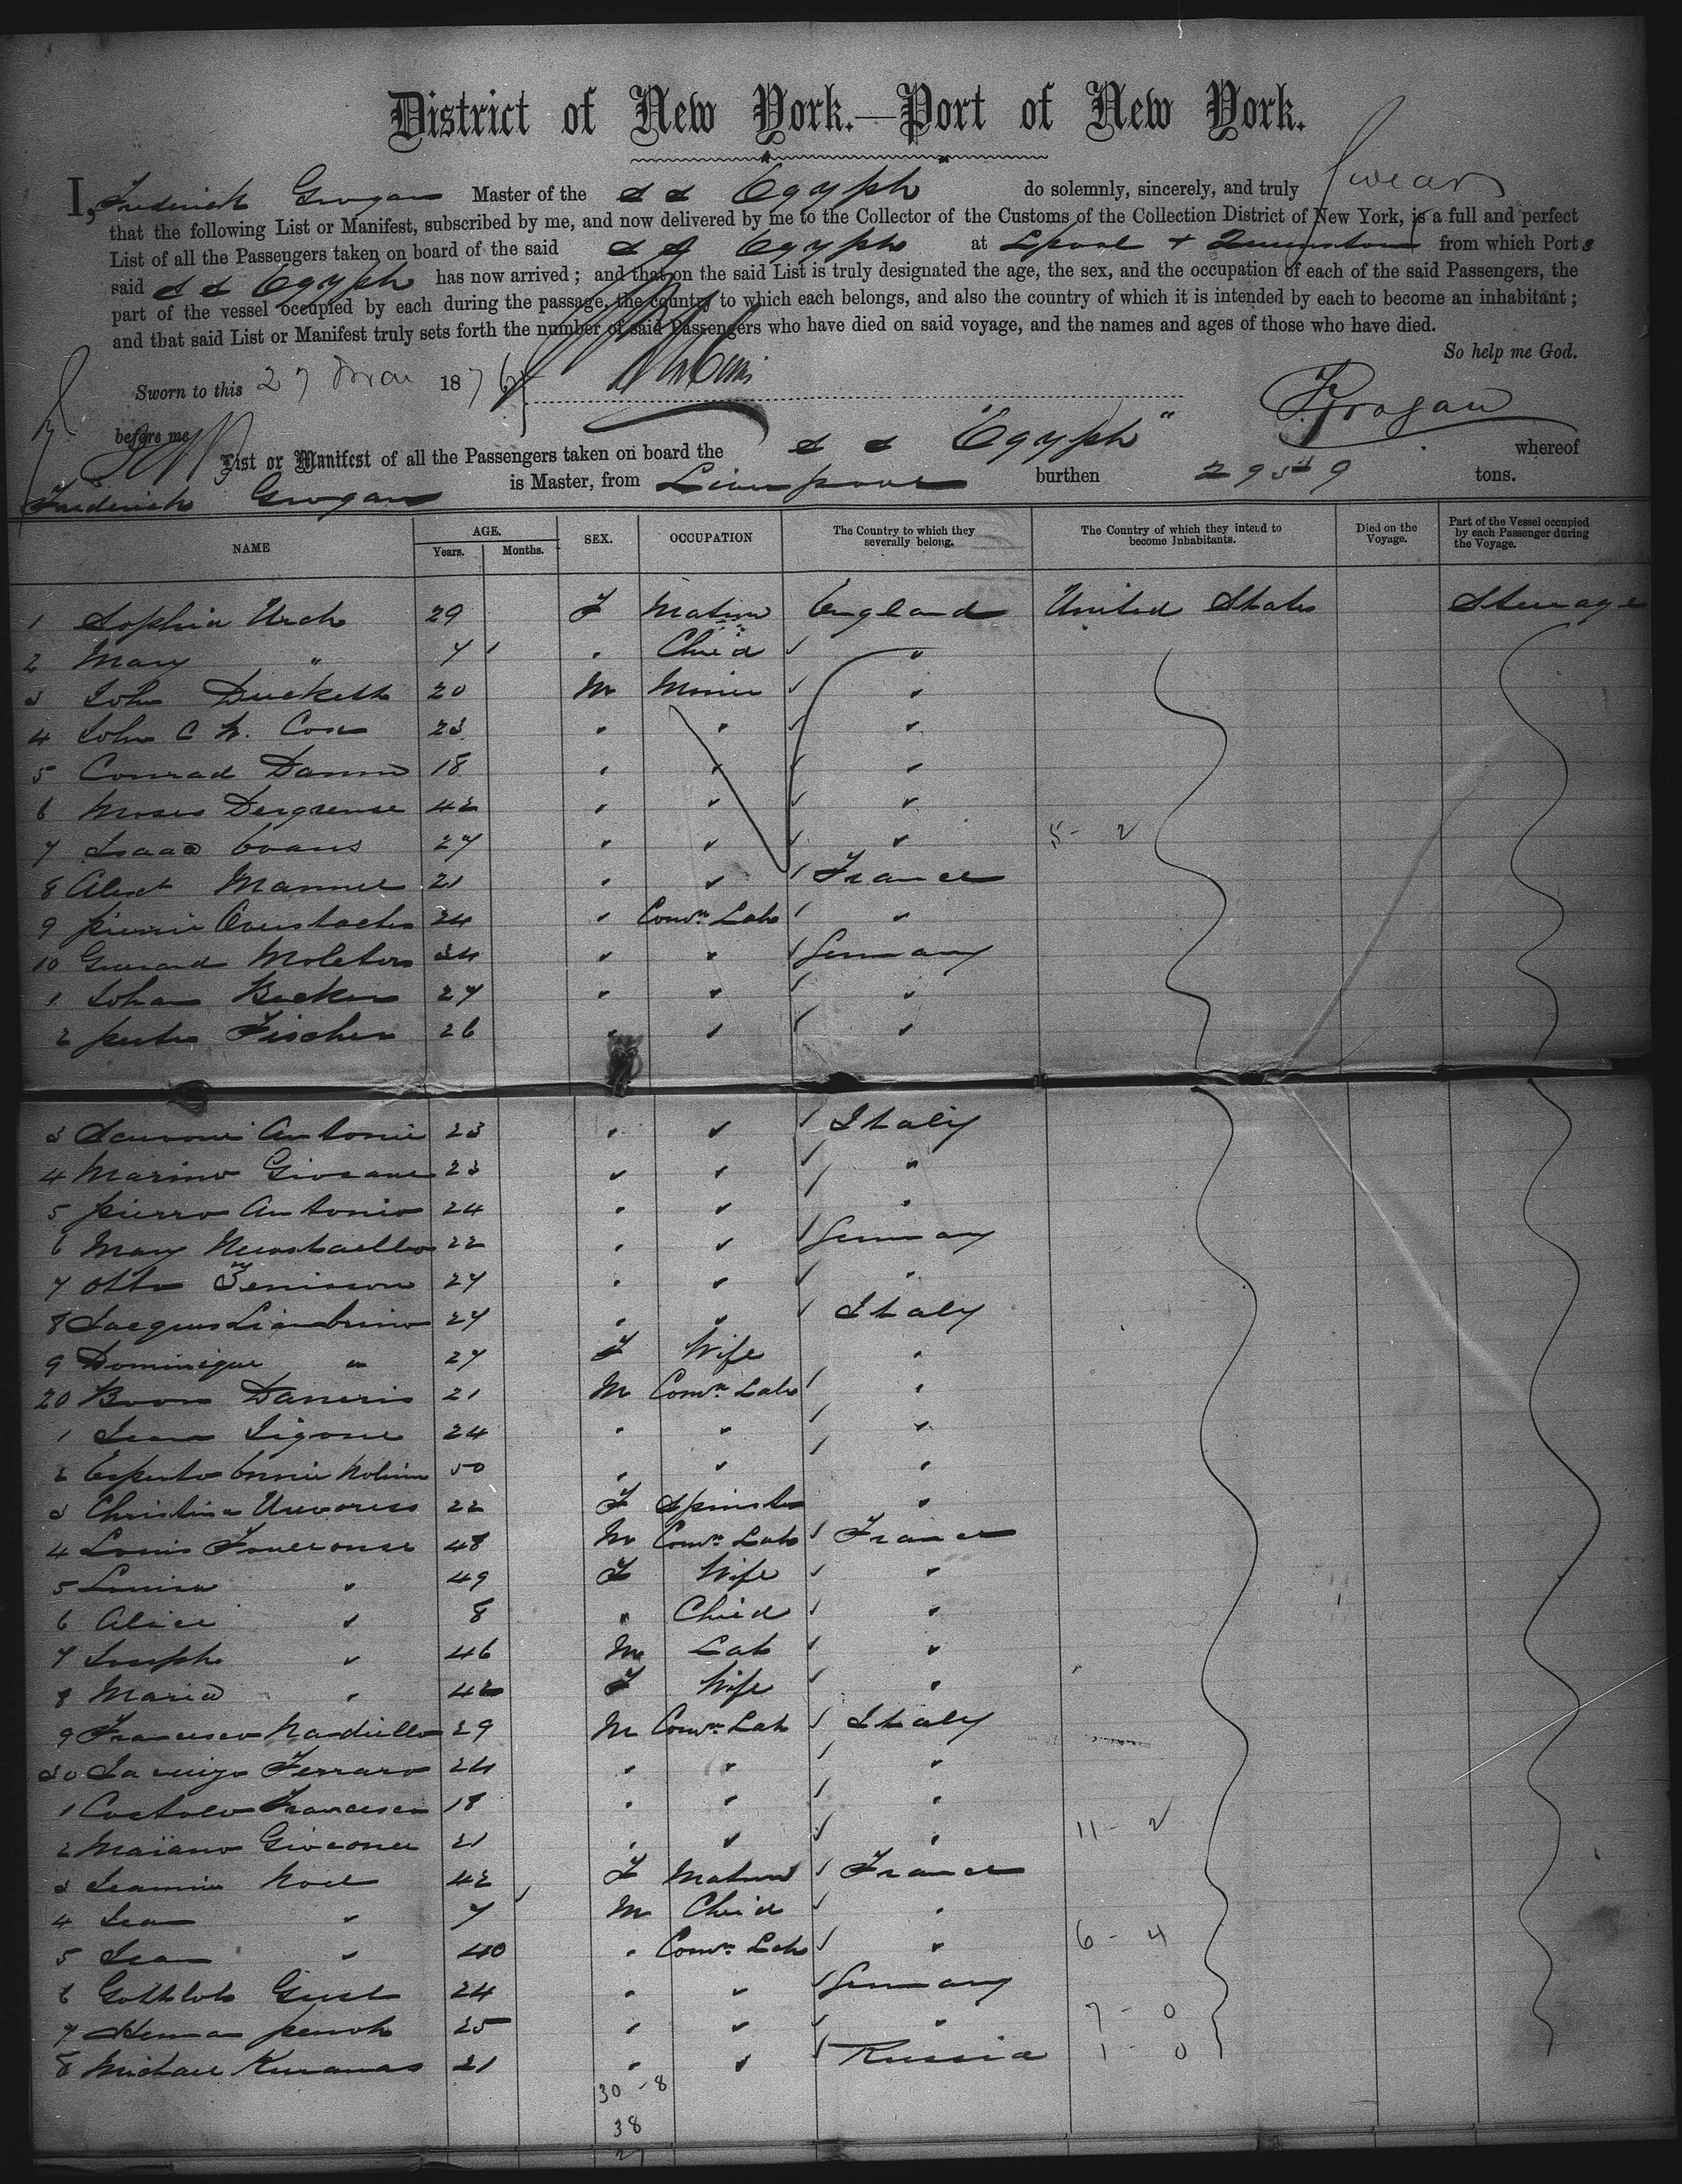 District of New York.—Port of New York.
I, Frederick Grogan Master of the S S Egypt do solemnly, sincerely, and truly swear
that the following List or Manifest, subscribed by me, and now delivered by me to the Collector of the Customs of the Collection District of New York, is a full and perfect
List of all the Passengers taken on board of the said S S Egypt at Lpool + Queenstown from which Port s
said S S Egypt has now arrived; and that on the said List is truly designated the age, the sex, and the occupation of each of the said Passengers, the
part of the vessel occupied by each during the passage, the country to which each belongs, and also the country of which it is intended by each to become an inhabitant;
and that said List or Manifest truly sets forth the number of said Passengers who have died on said voyage, and the names and ages of those who have died.
So help me God.
Sworn to this 27 Mar 1876
F Grogan
before me
List or Manifest of all the Passengers taken on board the S S "Egypt" whereof
Frederick Grogan is Master, from Liverpool burthen tons.
NAME AGE. Years. Months. SEX. OCCUPATION The Country to which they severally belong. The Country of which they intend to become Inhabitants. Died on the Voyage. Part of the Vessel occupied by each Passenger during the Voyage.
1 Sophia Uch 29 F Matron England United States Steerage
2 Mary " 7 " Child "
3 John Duckett 20 M Miner "
4 John C H. Cox 23 " " "
5 Conrad Damm 18 " " "
6 Moses 42 " " "
7 Isaac Evans 27 " " " 5 - 2
8 Albert Mamie 21 " " France
9 24 " Comn Lab "
10 34 " " Germany
1 Johan Becker 27 " " "
2 Peter Fischer 26 " " "
3 Antonie 23 " " Italy
4 Marino Giovane 23 " " "
5 Pierro Antonio 24 " " "
6 Mary 22 " " Germany
7 Otto 27 " " "
8 Jacques 27 " " Italy
9 Dominique " 27 F Wife "
20 Boon Daneris 21 M Comn Lab "
1 Jean Ligone 24 " " "
2 50 " " "
3 Christina 22 F Spinster "
4 Louis 48 M Comn Lab France
5 Louisa " 49 F Wife "
6 Alice " 8 " Child "
7 Joseph " 46 M Lab "
8 Maria " 42 F Wife "
9 Francesco Nardiello 29 M Comn Lab Italy
30 Ferraro 24 " " "
1 Costolo Francesco 18 " " "
2 Maiano Gioconer 21 " " " 11 - 2
3 Jeannie Noel 42 F Matron France
4 Jean " 7 M Child "
5 Jean " 40 " Comn Lab " 6 - 4
6 Gottlob Geist 24 " " Germany
7 Herman 25 " " " 7 - 0
8 Michael 21 " " Russia 1 - 0
30 - 8
38